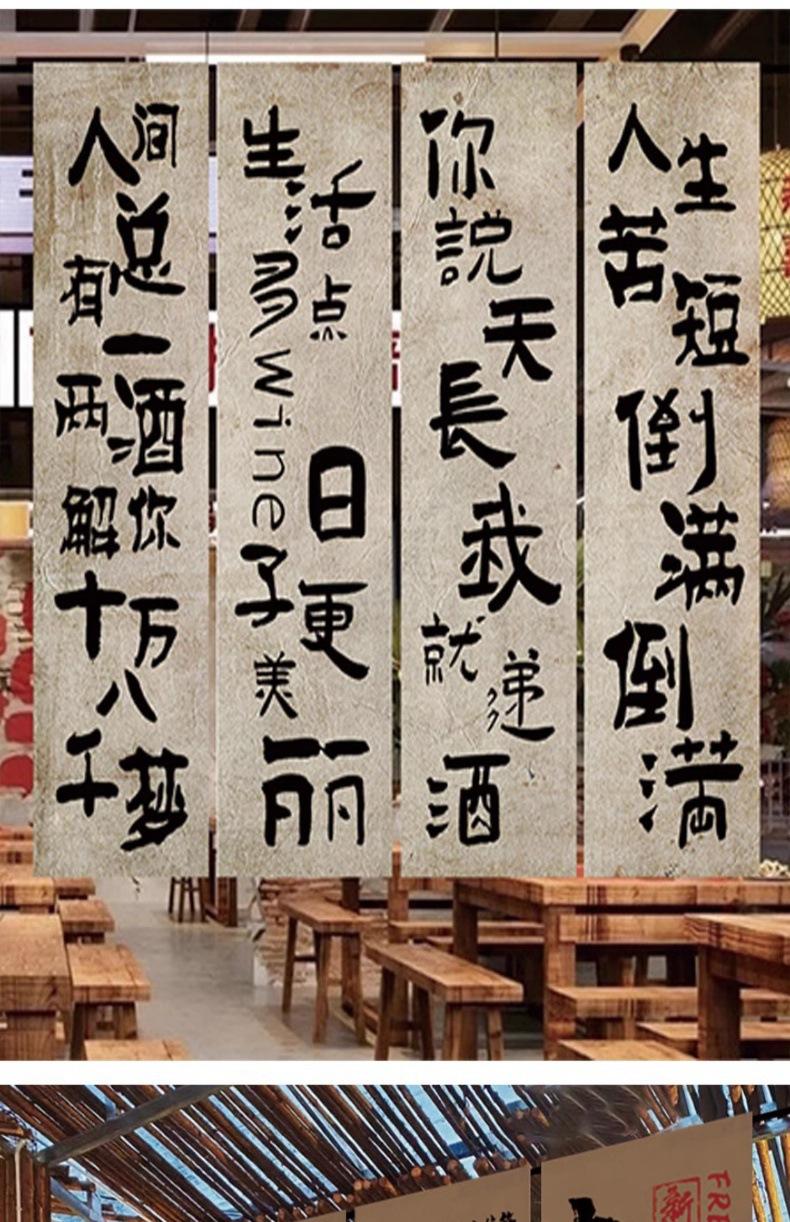 人间总有一两酒
解你十万八千梦
生活多点wine
日子更美丽
你説天長
我就递酒
人生苦短
倒满倒満
新
FRE